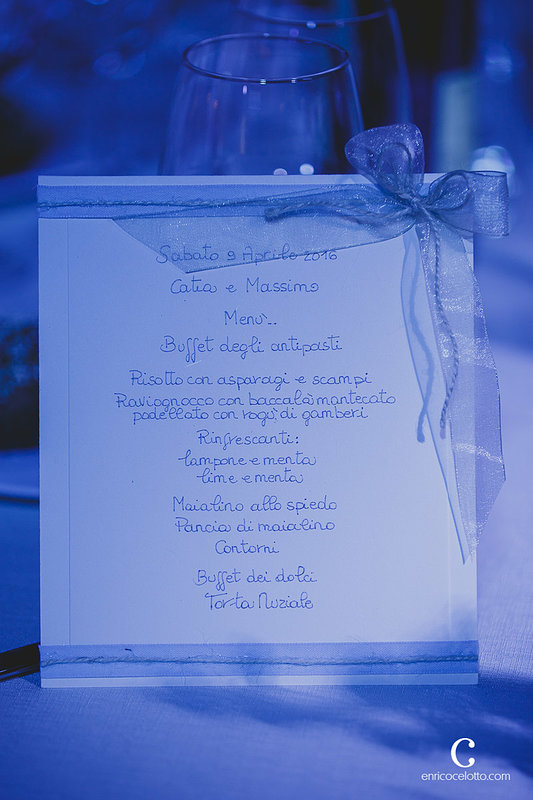 Sabato 9 Aprile 2016
Catia e Massimo
Menù...
Buffet degli antipasti
Risotto con asparagi e scampi
Raviognocco con baccalà mantecato
padellato con ragù di gamberi
Rinfrescanti:
lampone e menta
lime e menta
Maialino allo spiedo
Pancia di maialino
Contorni
Buffet dei dolci
Torta Nuziale
C
enricocelotto.com